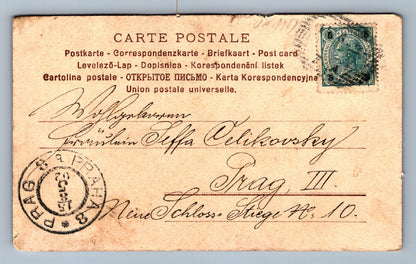 CARTE POSTALE
Postkarte - Correspondenzkarte - Briefkaart - Post card
Levelező-Lap - Dopisnica - Korespondenční lístek
Cartolina postale - ОТКРЫТОЕ ПИСЬМО - Karta Korespondencyjna
Union postale universelle.
Wohlgeboren
Fräulein Seffa Čelikovsky
Prag III.
Neue Schloss-Stiege № 10.
PRAG 8 a PRAHA 8